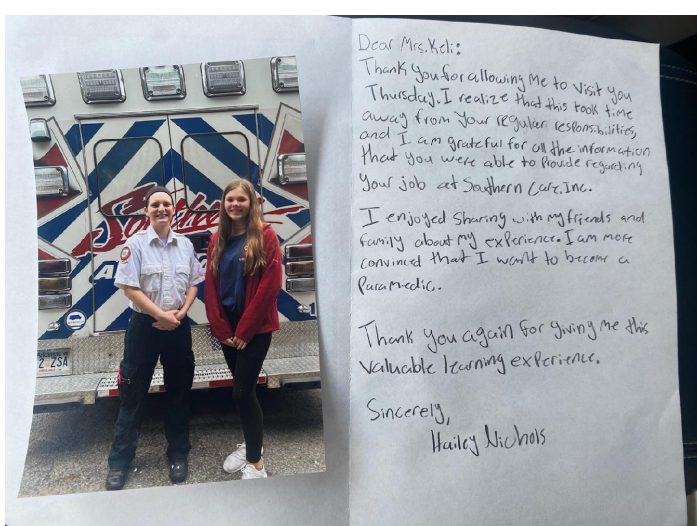 Southern
A
2 2SA
Dear Mrs. Keli:
Thank you for allowing me to visit you
Thursday. I realize that this took time
away from your regular responsibilities,
and I am grateful for all the information
that you were able to provide regarding
your job at Southern Care, Inc.
I enjoyed sharing with my friends and
family about my experience. I am more
convinced that I want to become a
Paramedic.
Thank you again for giving me this
valuable learning experience.
Sincerely,
Hailey Nichols